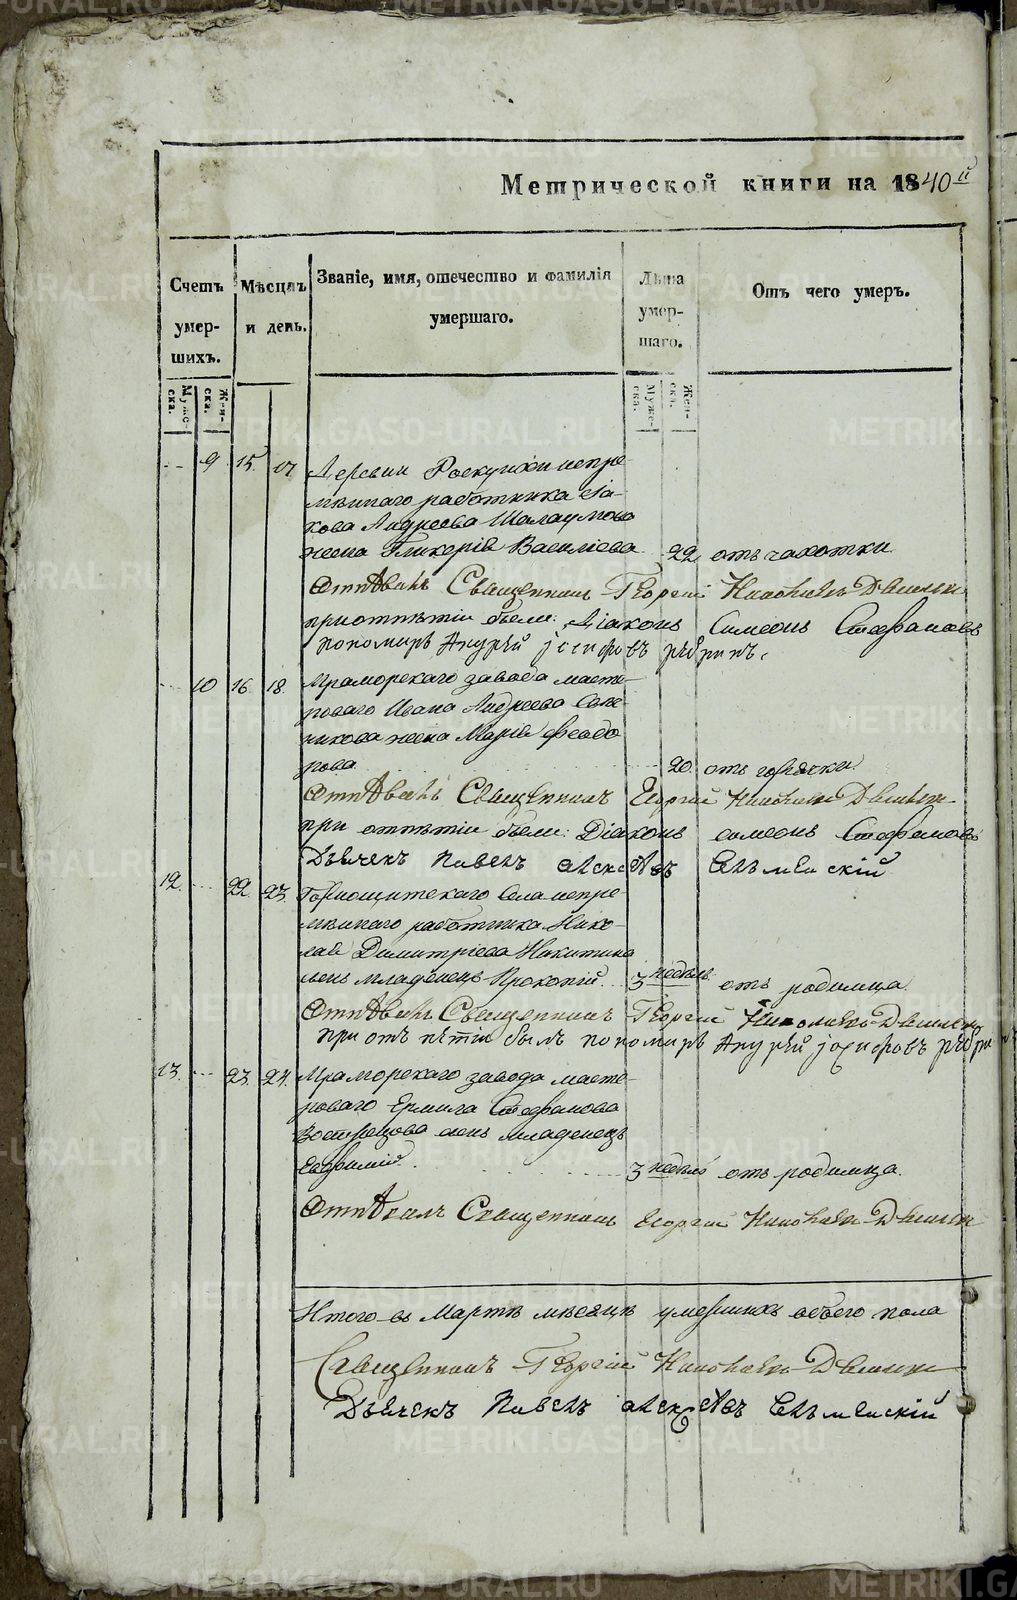 Метрической книги на 1840й
Счетъ умерших. Мѣсяцъ и день. Званіе, имя, отечество и фамилія умершаго. Лѣта умершаго. Отъ чего умеръ.
Муже-ска. Жен-ска. Муже-ска. Жен-ска.
9 15. 17. Деревни Роскухи непре-
мѣннаго работника Іа-
кова Андреева Шалаумова
жена Гликерія Василіева 22 отъ чахотки
Отпѣвалъ Священникъ Георгій Николаевъ
при отпѣтіи были: Діаконъ Симеонъ Стефановъ
пономарь
10 16. 18. Мраморскаго завода масте-
роваго Ивана Андреева
жена Марія Феодо
рова 20. отъ горячки
Отпѣвалъ Священникъ Георгій Николаевъ
при отпѣтіи были: Діаконъ Симеонъ Стефановъ
Дьячекъ Павелъ Алексѣевъ
12. 22. 23. Горнощитскаго села непре-
мѣннаго работника Нико-
лая Димитріева Никитина
сынъ младенецъ Прокопій 3 недѣль отъ родимца
Отпѣвалъ Священникъ Георгій Николаевъ
при отпѣтіи былъ пономарь
13. 23. 24. Мраморскаго завода масте-
роваго Ермила Стефанова
Вострецова сынъ младенецъ
Евфимій 3 недѣль отъ родимца.
Отпѣвалъ Священникъ Георгій Николаевъ
Итого въ Мартѣ мѣсяцѣ умершихъ обоего пола
Священникъ Георгій Николаевъ
Дьячекъ Павелъ Алексѣевъ
METRIKI.GASO-URAL.RU